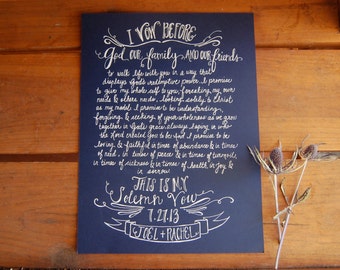 I VOW BEFORE
God, our family, AND our friends
to walk life with you in a way that
displays God's redemptive power. I promise
to give my whole self to you, forsaking my own
needs & others needs, looking solely to Christ
as my model. I promise to be understanding,
forgiving, & seeking of your wholeness as we grow
together in God's grace, always hoping in who
the Lord created you to be. And I promise to be
loving & faithful in times of abundance & in times of
need, in times of peace & in times of turmoil,
in times of sickness & in times of health, in joy &
in sorrow.
THIS IS MY
Solemn Vow
7.27.13
JOEL + RACHEL